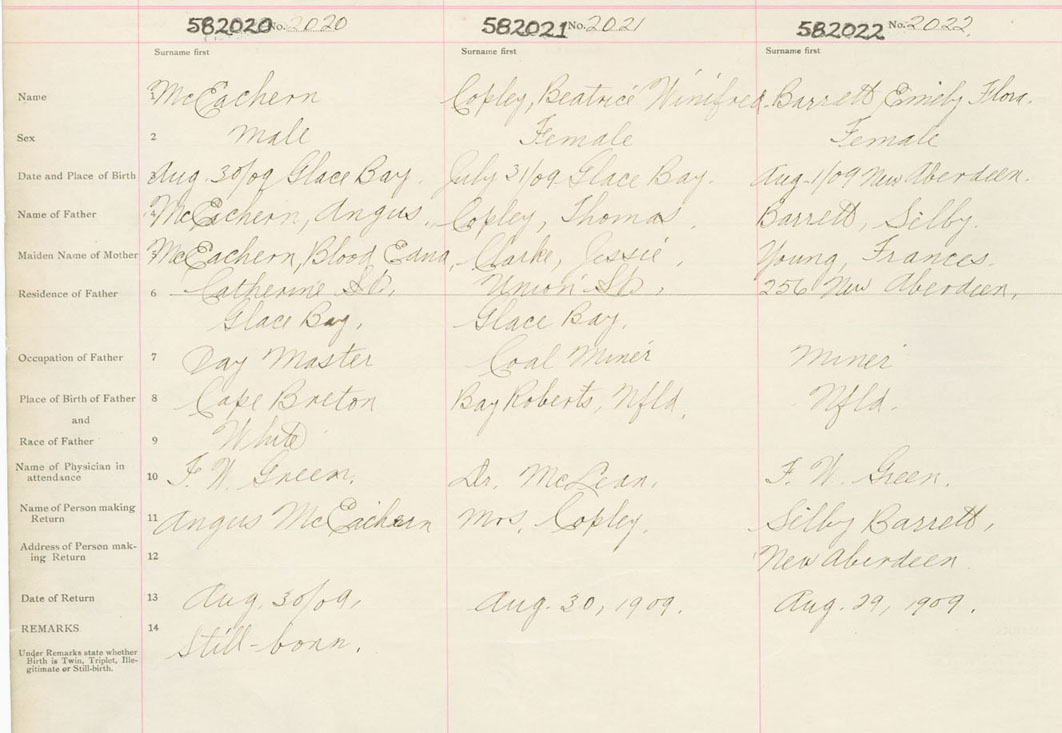 582020 No. 2020 582021 No. 2021 582022 No. 2022
Surname first Surname first Surname first
Name 1 McEachern Copley, Beatrice Winifred. Barrett Emily Flora.
Sex 2 Male Female Female
Date and Place of Birth 3 Aug. 30/09 Glace Bay. July 31/09 Glace Bay. Aug-1/09 New Aberdeen.
Name of Father 4 McEachern, Angus. Copley, Thomas. Barrett, Silby.
Maiden Name of Mother 5 McEachern, Blood Edna, Clarke, Jessie. Young, Frances.
Residence of Father 6 Catherine St., Union St., 256 New Aberdeen,
Glace Bay, Glace Bay.
Occupation of Father 7 Day Master Coal Miner Miner
Place of Birth of Father 8 Cape Breton Bay Roberts, Nfld. Nfld.
and
Race of Father 9 White
Name of Physician in
attendance 10 F. W. Green. Dr. McLean. F. W. Green.
Name of Person making
Return 11 Angus McEachern Mrs. Copley. Silby Barrett,
Address of Person mak-
ing Return 12 New Aberdeen
Date of Return 13 Aug. 30/09, Aug. 30, 1909. Aug. 29, 1909.
REMARKS 14 Still-born.
Under Remarks state whether
Birth is Twin, Triplet, Ille-
gitimate or Still-birth.